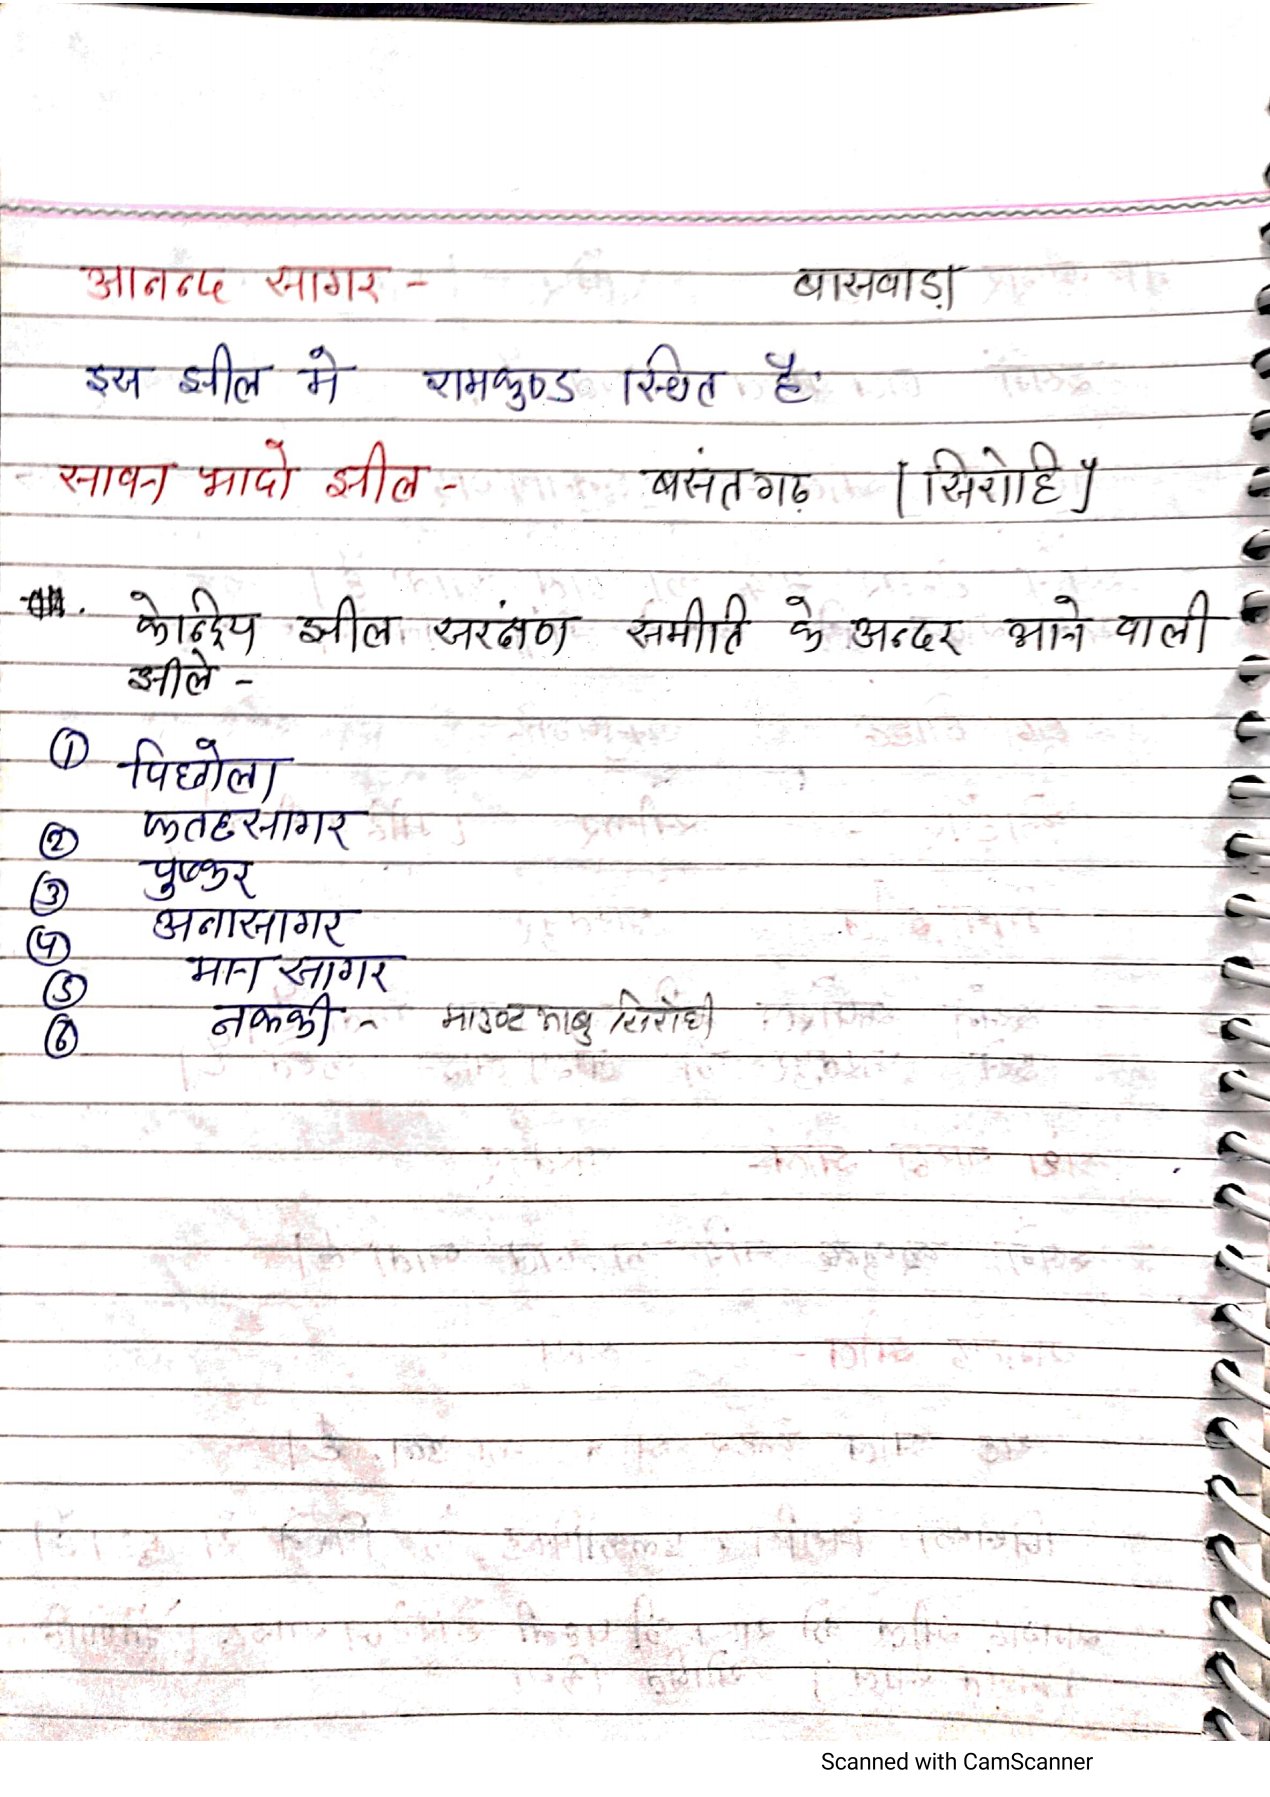 आनन्द सागर - बासवाड़ा
इस झील मे रामकुण्ड स्थित है
सावन भादो झील - बसंतगढ़ [सिरोहि]
केन्द्रिय झील सरक्षंण समीति के अन्दर आने वाली
झीले -
① पिछोला
② फतहसागर
③ पुष्कर
④ अनासागर
⑤ मान सागर
⑥ नक्की - माउण्ट आबु सिरोही
Scanned with CamScanner